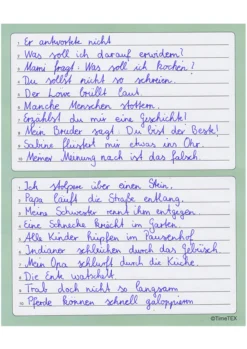 1. Er antwortete nicht
2. Was soll ich darauf erwidern?
3. Mami fragt: Was soll ich kochen?
4. Du sollst nicht so schreien.
5. Der Löwe brüllt laut.
6. Manche Menschen stottern.
7. Erzählst du mir eine Geschichte?
8. Mein Bruder sagt: Du bist der Beste!
9. Sabine flüstert mir etwas ins Ohr.
10. Meiner Meinung nach ist das falsch.
1. Ich stolpere über einen Stein.
2. Papa läuft die Straße entlang.
3. Meine Schwester rennt ihm entgegen.
4. Eine Schnecke kriecht im Garten.
5. Alle Kinder hüpfen im Pausenhof
6. Indianer schleichen durch das Gebüsch.
7. Mein Opa schlurft durch die Küche.
8. Die Ente watschelt.
9. Trab doch nicht so langsam
10. Pferde können schnell galoppieren
©TimeTEX